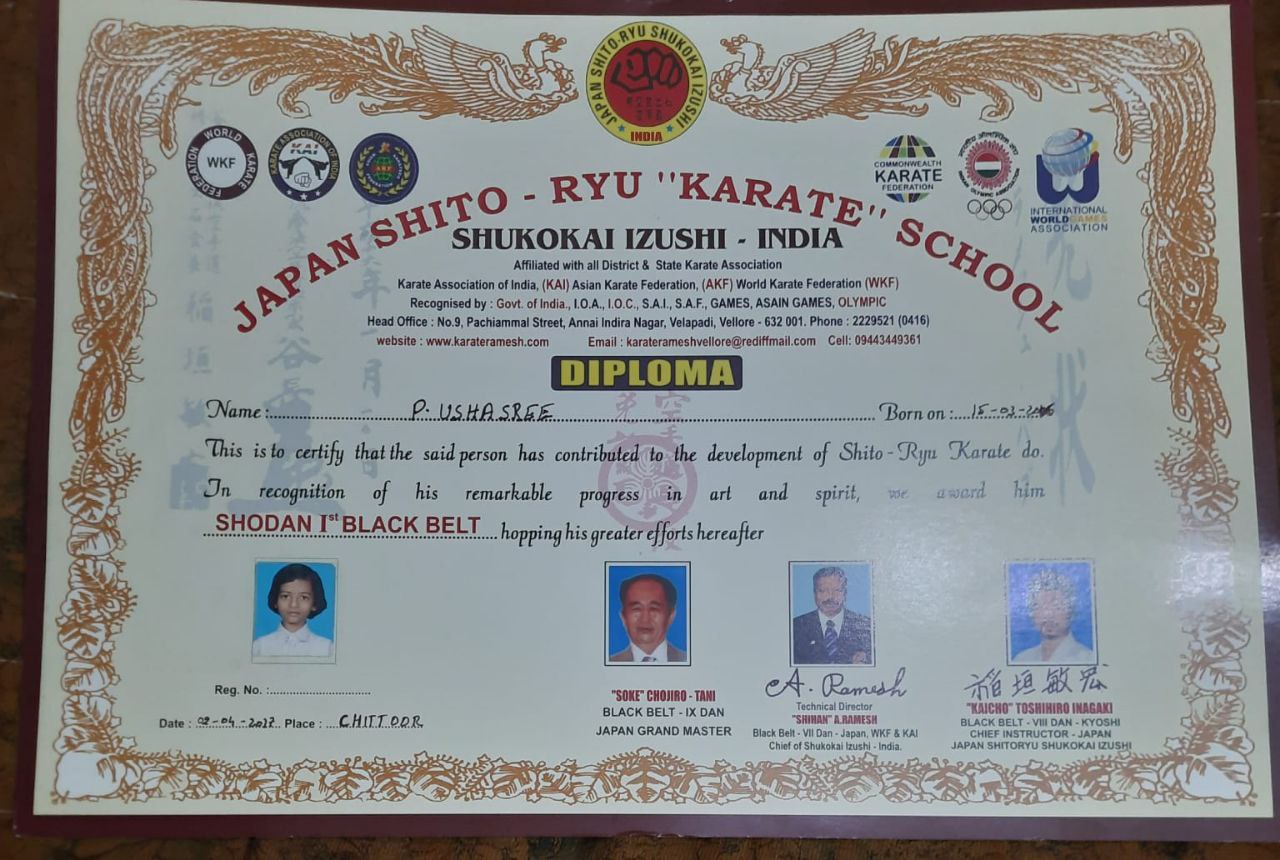 JAPAN SHITO-RYU SHUKOKAI IZUSHI
INDIA
WORLD KARATE FEDERATION
WKF
KARATE ASSOCIATION OF INDIA
KAI
COMMONWEALTH
KARATE
FEDERATION
INTERNATIONAL
WORLDGAMES
ASSOCIATION
JAPAN SHITO - RYU "KARATE" SCHOOL
SHUKOKAI IZUSHI - INDIA
Affiliated with all District & State Karate Association
Karate Association of India, (KAI) Asian Karate Federation, (AKF) World Karate Federation (WKF)
Recognised by : Govt. of India., I.O.A., I.O.C., S.A.I., S.A.F., GAMES, ASAIN GAMES, OLYMPIC
Head Office : No.9, Pachiammal Street, Annai Indira Nagar, Velapadi, Vellore - 632 001. Phone : 2229521 (0416)
website : www.karateramesh.com Email : karaterameshvellore@rediffmail.com Cell: 09443449361
DIPLOMA
Name : P. USHASREE Born on : 15-03-
This is to certify that the said person has contributed to the development of Shito-Ryu Karate do.
In recognition of his remarkable progress in art and spirit, we award him
SHODAN Ist BLACK BELT hopping his greater efforts hereafter
Reg. No. :
Date : 02-04-2017 Place : CHITTOOR
"SOKE" CHOJIRO - TANI
BLACK BELT - IX DAN
JAPAN GRAND MASTER
A. Ramesh
Technical Director
"SHIHAN" A.RAMESH
Black Belt - VII Dan - Japan, WKF & KAI
Chief of Shukokai Izushi - India.
稲垣敏宏
"KAICHO" TOSHIHIRO INAGAKI
BLACK BELT - VIII DAN - KYOSHI
CHIEF INSTRUCTOR - JAPAN
JAPAN SHITORYU SHUKOKAI IZUSHI